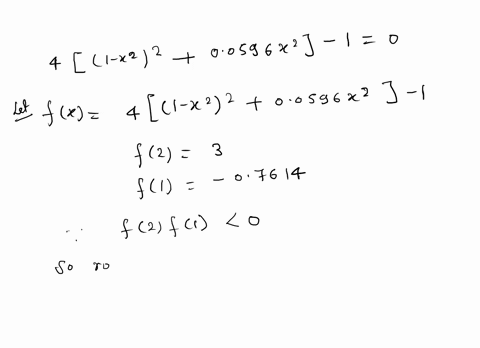 4 [ (1-x²)² + 0.0596x² ] - 1 = 0
Let f(x) = 4 [ (1-x²)² + 0.0596x² ] - 1
f(2) = 3
f(1) = - 0.7614
∵ f(2) f(1) < 0
So ro